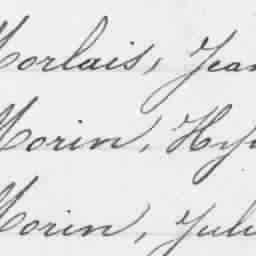 Morlais, Jean
Morin, Hy
Morin, Jul